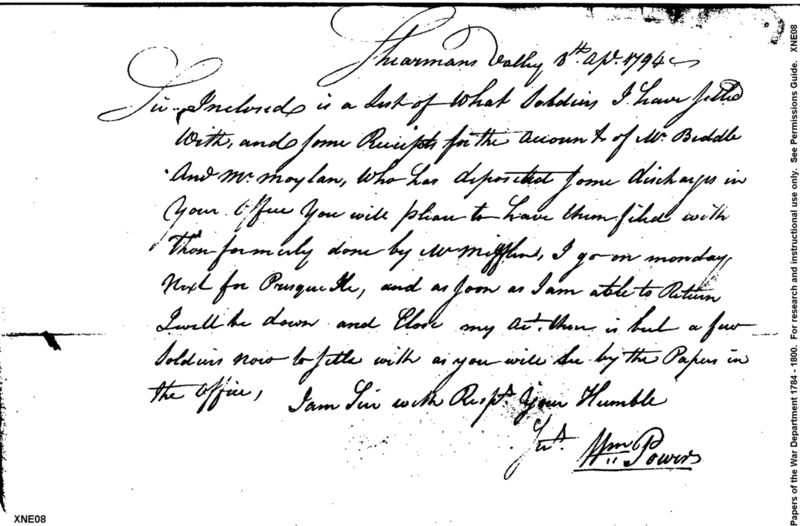 Shearmans Valley 8th Apl. 1794
Sir Inclosed is a List of What Soldiers I have settled
With, and some Receipts for the Account of Mr. Biddle
And Mr. Moylan, Who has deposited some discharges in
Your office You will please to have them filed with
those formerly done by Mr Mifflin, I go on monday
Next for Presque Ile, and as soon as I am able to Return
I will be down and Close my Act. there is but a few
Soldiers now to settle with as you will see by the Papers in
the office, I am Sir with Respt. Your Humble
Wm Powers
XNE08
Papers of the War Department 1784 - 1800. For research and instructional use only. See Permissions Guide. XNE08